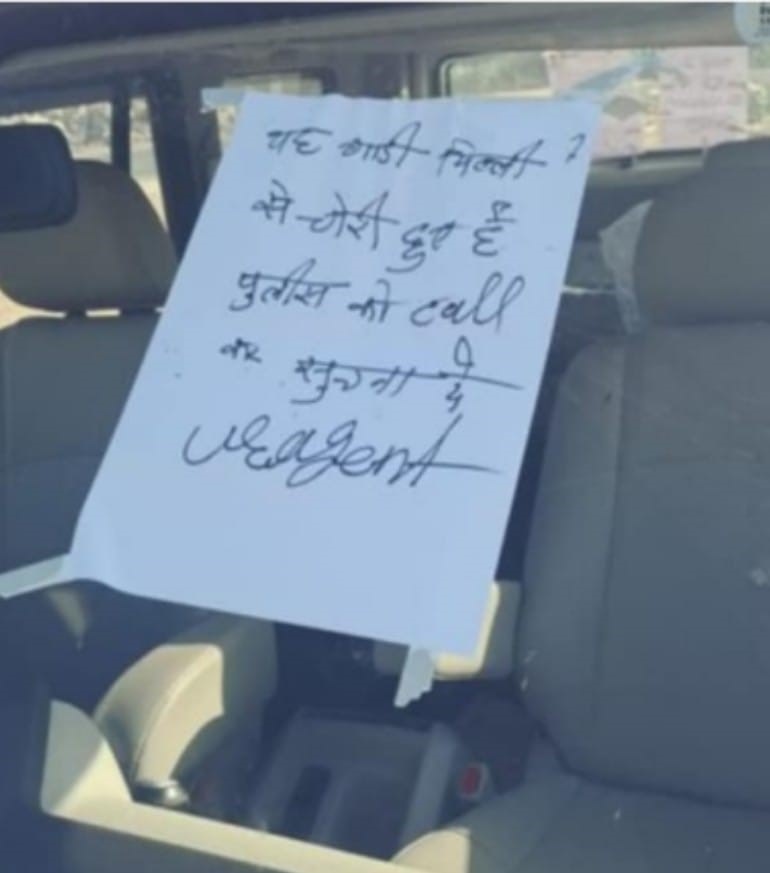 यह गाडी दिल्ली
से चोरी हुए है
पुलीस को call
कर सुचना दे
uragent